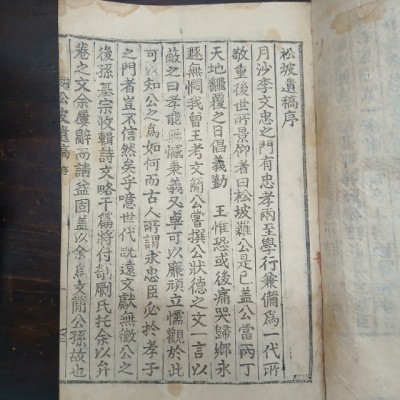 松坡遺稿序
月沙李文忠之門有忠孝兩至學行兼備爲一代所
敬重後世所景仰者曰松坡羅公是已蓋公當丙丁
天地飜覆之日倡義勤 王惟恐或後痛哭歸鄉永
遯無憫我曾王考文簡公嘗撰公狀德之文一言以
蔽之曰孝能無憾秉義又卓可以廉頑立懦觀於此
可以知公之爲如何而古人所謂求忠臣必於孝子
之門者豈不信然矣乎噫世代訛遠文獻無徵公之
後孫基宗收輯詩文略干篇將付剞劂氏托余以弁
卷之文余屢辭而請益固蓋以余爲文簡公孫故也
松坡遺稿 序